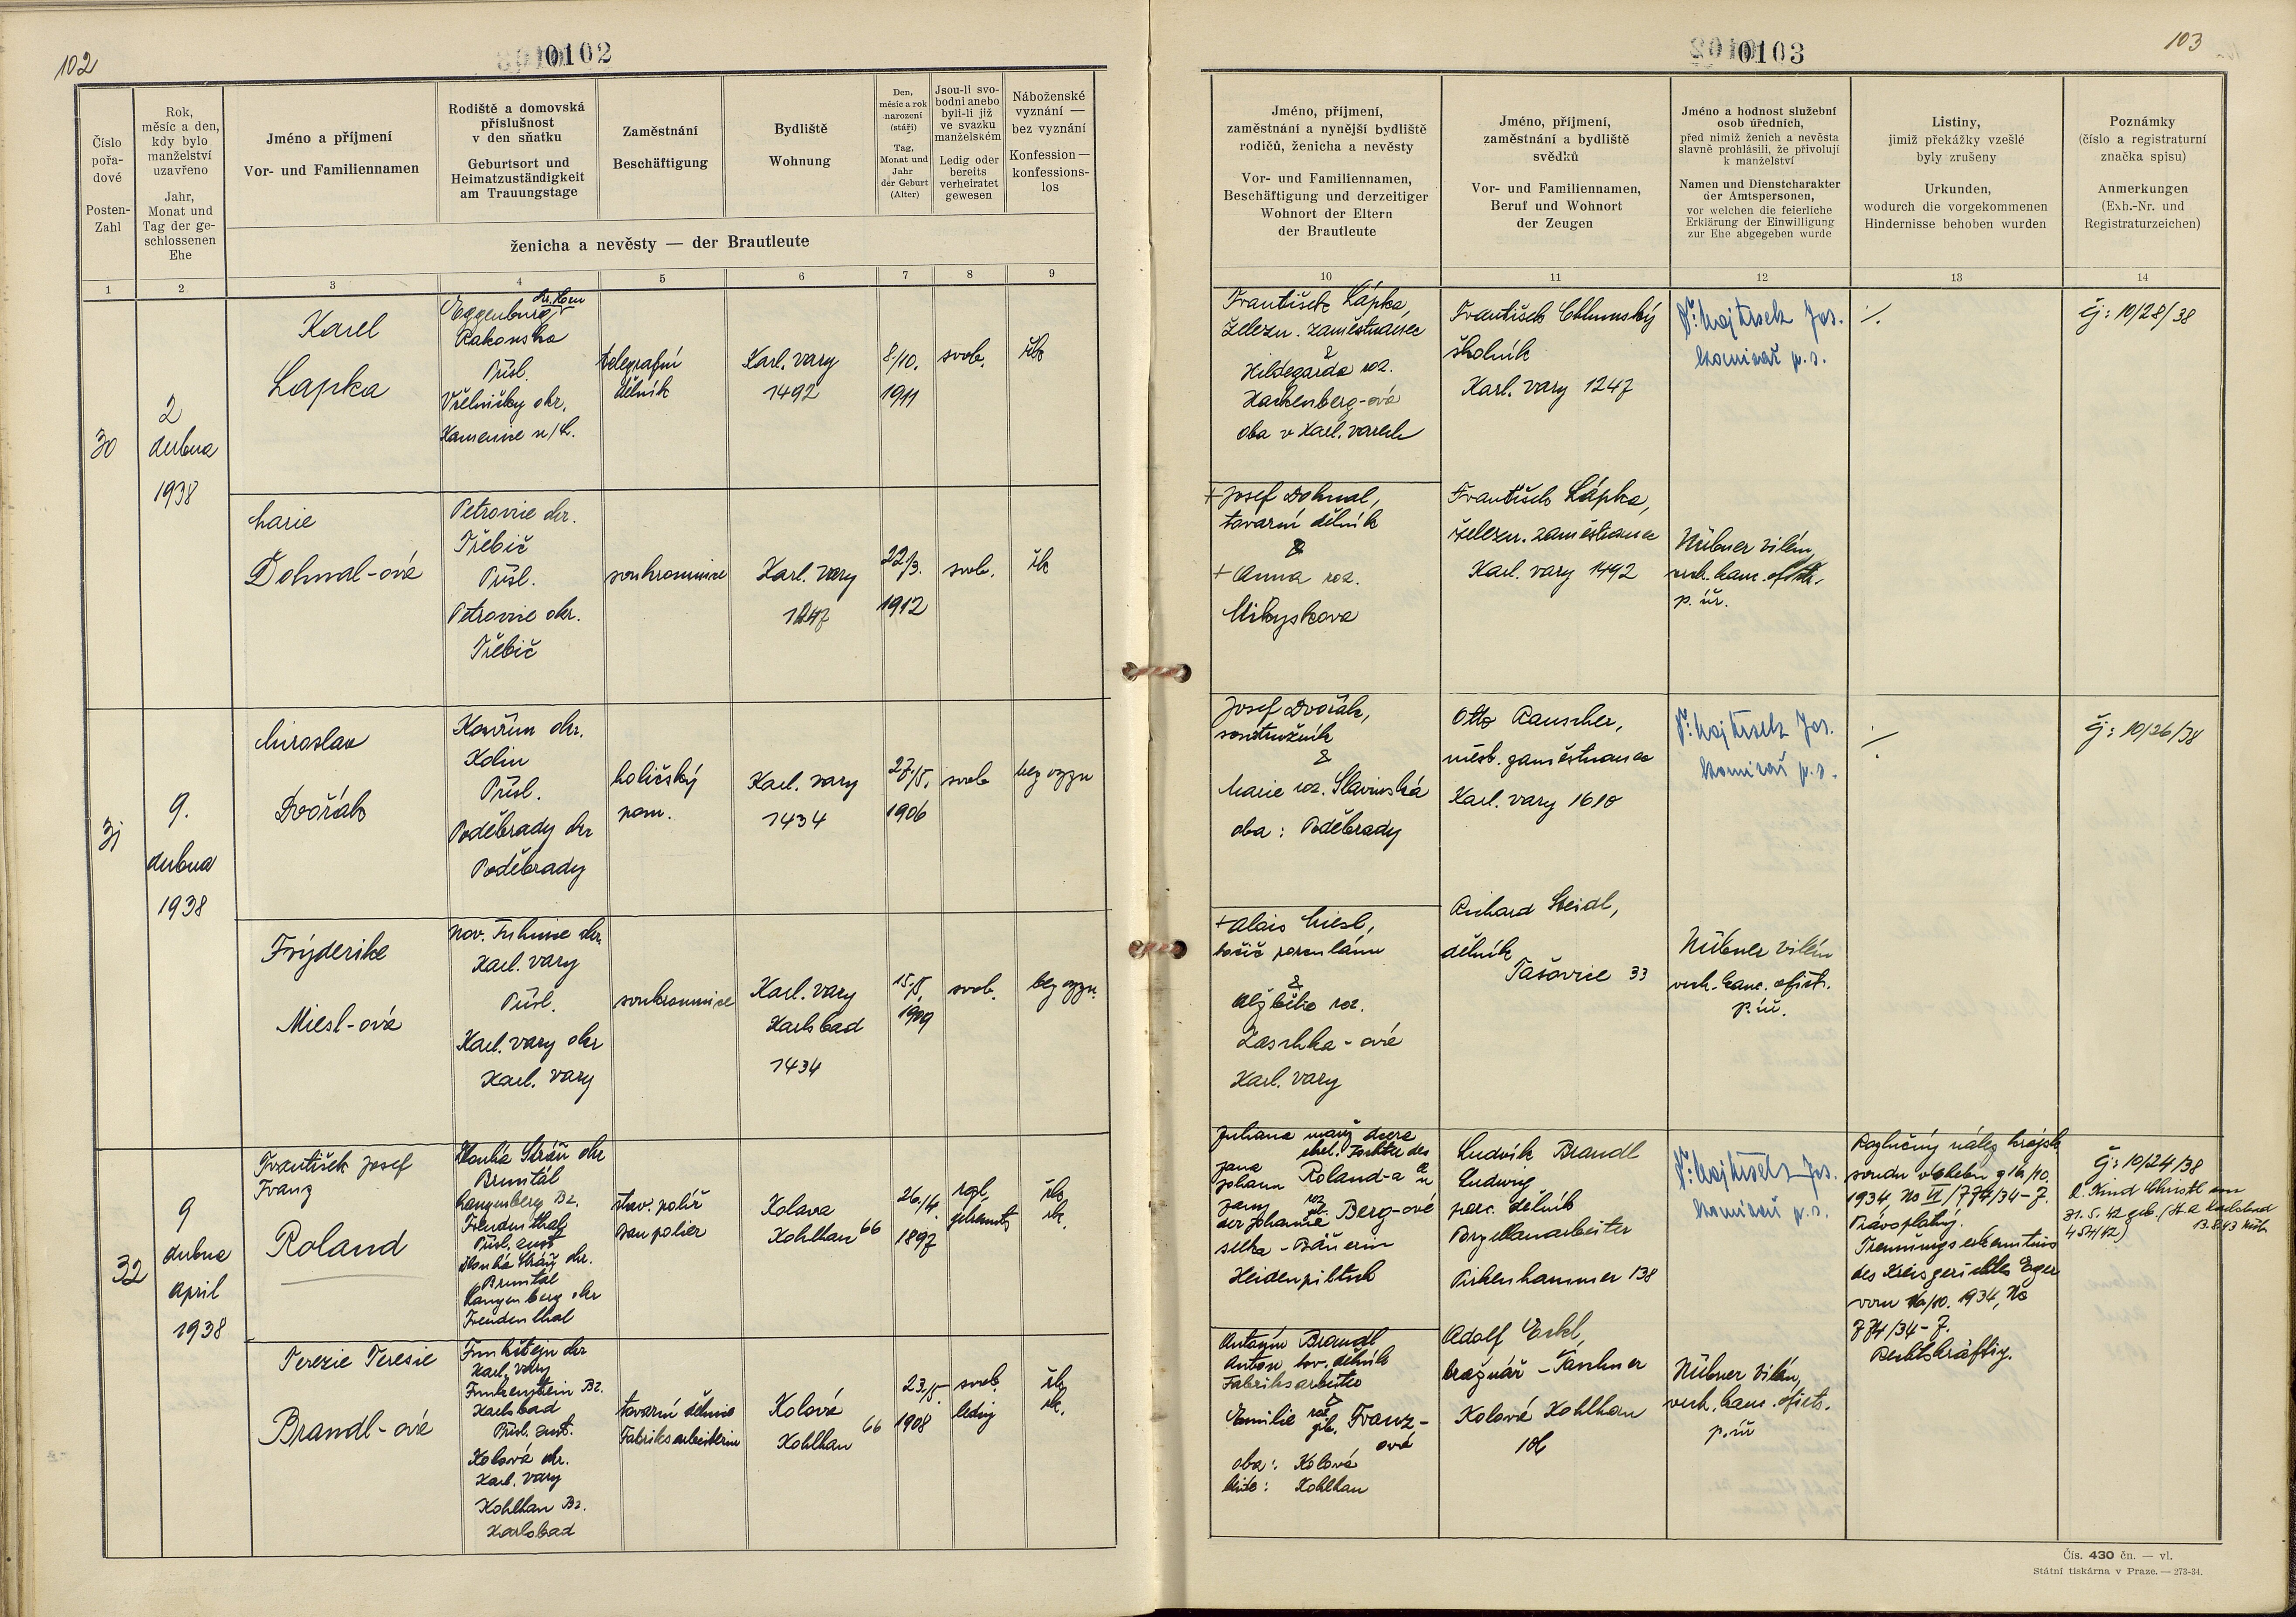 102
0102
Číslo
pořa-
dové
Posten-
Zahl
Rok,
měsíc a den,
kdy bylo
manželství
uzavřeno
Jahr,
Monat und
Tag der ge-
schlossenen
Ehe
Jméno a příjmení
Vor- und Familiennamen
Rodiště a domovská
příslušnost
v den sňatku
Geburtsort und
Heimatzuständigkeit
am Trauungstage
Zaměstnání
Beschäftigung
Bydliště
Wohnung
Den,
měsíc a rok
narození
(stáří)
Tag,
Monat und
Jahr
der Geburt
(Alter)
Jsou-li svo-
bodni anebo
byli-li již
ve svazku
manželském
Ledig oder
bereits
verheiratet
gewesen
Náboženské
vyznání —
bez vyznání
Konfession —
konfessions-
los
ženicha a nevěsty — der Brautleute
1 2 3 4 5 6 7 8 9
30
2
dubna
1938
Karel
Lapka
Eggenburg
Rakousko
Přísl.
Včelničky okr.
Kamenice n/L.
telegrafní
dělník
Karl. vary
1492
8/10.
1911
svob.
řk
Marie
Dohnal-ová
Petrovice okr.
Třebíč
Přísl.
Petrovice okr.
Třebíč
soukromnice
Karl. vary
1247
22/3.
1912
svob.
řk
31
9.
dubna
1938
Miroslav
Dvořák
Kouřim okr.
Kolín
Přísl.
Poděbrady okr
Poděbrady
holičský
pom.
Karl. vary
1434
27/5.
1906
svob
bez vyzn
Fryderike
Miesl-ová
Karl. vary
Přísl.
Karl. vary okr
Karl. vary
soukromnice
Karl. vary
Karlsbad
1434
15/5.
1909
svob.
bez vyzn.
32
9
dubna
April
1938
František Josef
Franz
Roland
Dlouhá Stráň okr
Bruntál
Langenberg Bz.
Freudenthal
Přísl. zust
Dlouhá Stráň okr.
Bruntál
Langenberg okr
Freudenthal
stav. polír
Baupolier
Kolova
Kohlhau 66
26/4
1897
rozl.
řk.
rk.
Terezie Teresie
Brandl-ová
Karl. vary
Funkenstein Bz.
Karlsbad
Přísl. zust.
Kolová okr.
Karl. vary
Kohlhau Bz.
Karlsbad
tovární dělnice
Fabriksarbeiterin
Kolová
Kohlhau 66
23/5
1908
svob.
ledig
řk
rk.
0103
103
Jméno, příjmení,
zaměstnání a nynější bydliště
rodičů, ženicha a nevěsty
Vor- und Familiennamen,
Beschäftigung und derzeitiger
Wohnort der Eltern
der Brautleute
Jméno, příjmení,
zaměstnání a bydliště
svědků
Vor- und Familiennamen,
Beruf und Wohnort
der Zeugen
Jméno a hodnost služební
osob úředních,
před nimiž ženich a nevěsta
slavně prohlásili, že přivolují
k manželství
Namen und Dienstcharakter
der Amtspersonen,
vor welchen die feierliche
Erklärung der Einwilligung
zur Ehe abgegeben wurde
Listiny,
jimiž překážky vzešlé
byly zrušeny
Urkunden,
wodurch die vorgekommenen
Hindernisse behoben wurden
Poznámky
(číslo a registraturní
značka spisu)
Anmerkungen
(Exh.-Nr. und
Registraturzeichen)
10 11 12 13 14
František Lápka,
železn. zaměstnanec
&
Hildegarda roz.
Hackenberg-ová
oba v Karl. varech
František Chlumský
školník
Karl. vary 1247
Jos.
komisař p. s.
./.
čj: 10/28/38
+ Josef Dohnal,
tovární dělník
&
+ Anna roz.
Mikyskova
František Lápka,
železn. zaměstnanec
Karl. vary 1492
Hübner Vilém,
vrch. kanc. ofic.
p. úř.
Josef Dvořák,
soustružník
&
Marie roz. Slavinská
oba: Poděbrady
Otto Rauscher,
měst. zaměstnanec
Karl. vary 1610
Jos.
komisař p. s.
./.
čj: 10/26/38
+ Alois Miesl,
točič porculánu
&
Alžběta roz.
Laschka-ová
Karl. vary
Richard Steidl,
dělník
Tašovice 33
Hübner Vilém
vrch. kanc. ofict.
p. úř.
Jana
Johann Roland-a u
Berg-ové
selka - Bäuerin
Heidenpiltsch
Ludvík Brandl
Ludwig
porc. dělník
Porzellanarbeiter
Pirkenhammer 138
Jos.
komisař p. s.
Rozlučný nález krajsk
soudu v Chebu z 16/10.
1934,
774/34-7.
Právoplatný.
Trennungserkenntnis
des Kreisgerichtes Eger
vom 16/10. 1934,
774/34-7.
Rechtskräftig.
čj: 10/24/38
Kind Christl am
31.5.42 geb. (St. A Karlsbad
454/42)
Antonín Brandl
Anton tov. dělník
Fabriksarbeiter
&
Emilie roz. geb. Franz-
ová
oba: Kolová
beide: Kohlhau
Adolf Erkl,
brašnář - Taschner
Kolová Kohlhau
106
Hübner Vilém,
vrch. kanc. ofict.
p. úř
Čís. 430 čn. — vl.
Státní tiskárna v Praze. — 273-34.